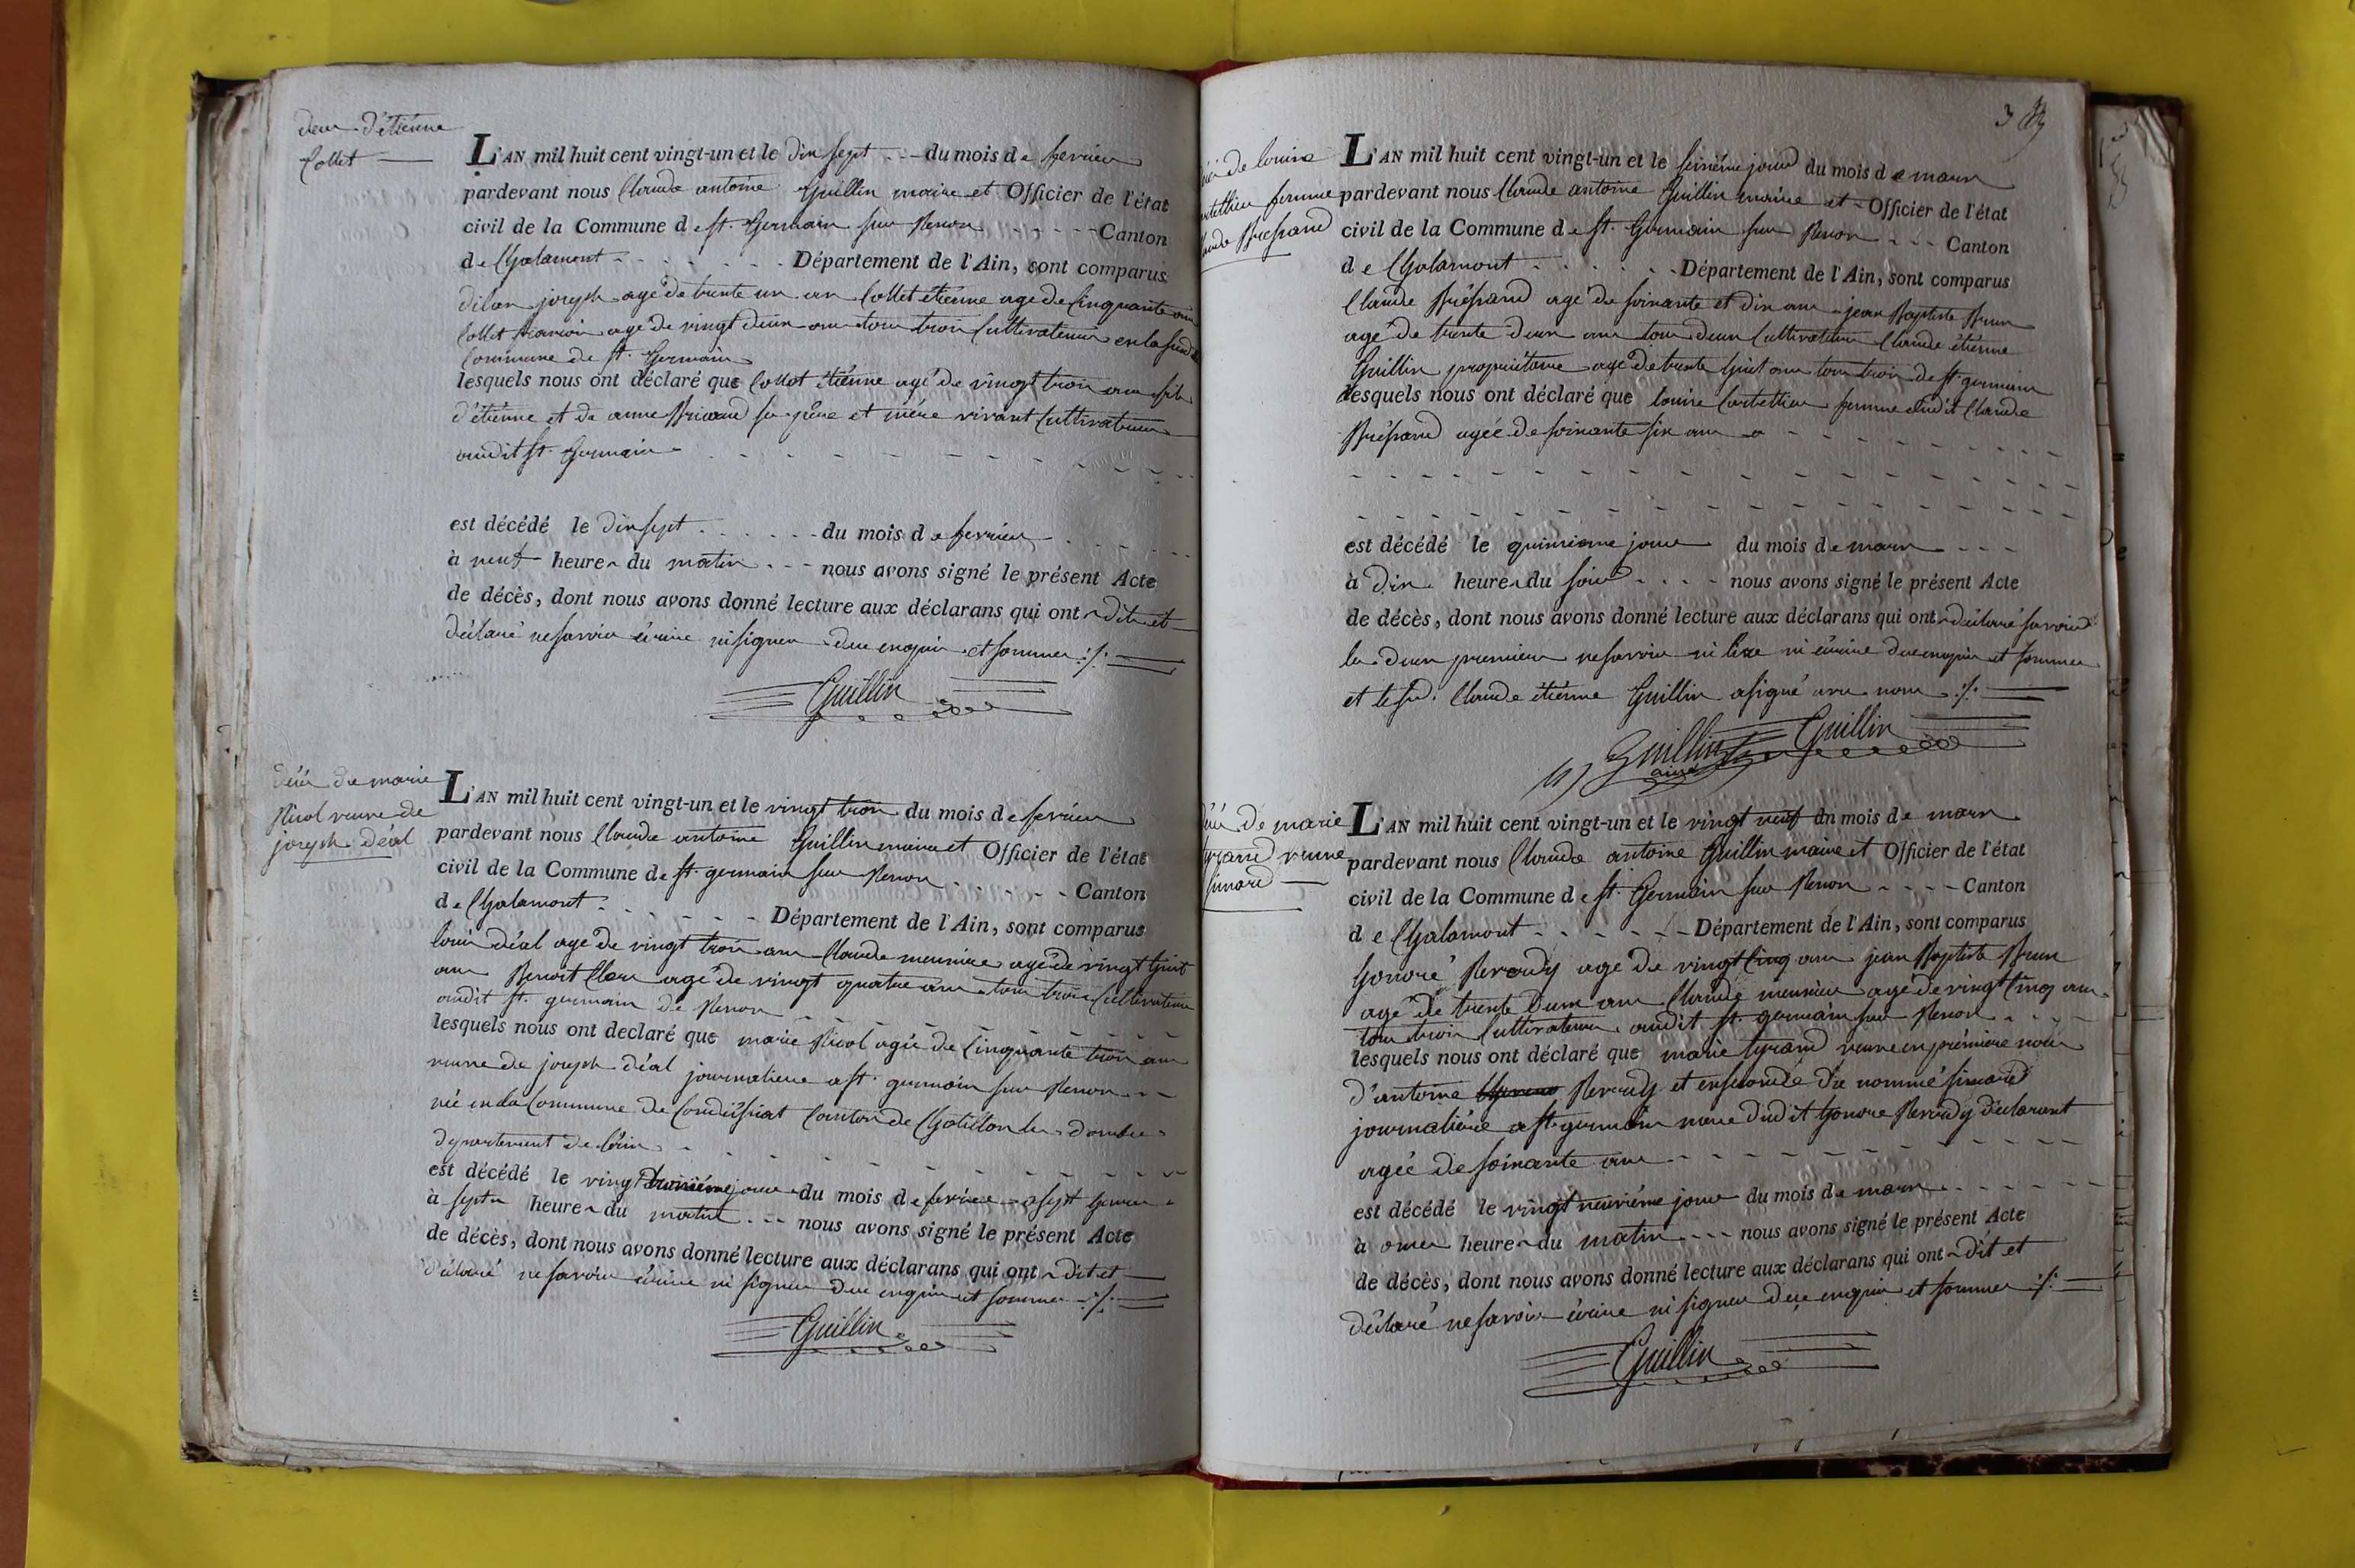 décès d'étienne
Collet
L'AN mil huit cent vingt-un et le dix sept du mois de fevrier
pardevant nous Claude antoine Guillin maire et Officier de l'état
civil de la Commune de st. Germain sur Renon Canton
de Chalamont Département de l'Ain, sont comparus
joseph agé de trente un an Collet étienne age de Cinquante ans
Collet francois agé de vingt deux ans tous trois Cultivateurs en la susd.
Commune de st. Germain
lesquels nous ont déclaré que Collet étienne agé de vingt trois ans fils
d'étienne et de anne ses père et mère vivant Cultivateurs
audit st. Germain
est décédé le dix sept du mois de fevrier
à neuf heures du matin nous avons signé le présent Acte
de décès, dont nous avons donné lecture aux déclarans qui ont dit et
déclaré ne savoir écrire ni signer de ce enquis et sommés
Guillin
décès de marie
Nicol veuve de
joseph déal
L'AN mil huit cent vingt-un et le vingt trois du mois de fevrier
pardevant nous Claude antoine Guillin maire et Officier de l'état
civil de la Commune de st. germain sur Renon Canton
de Chalamont Département de l'Ain, sont comparus
louis déal age de vingt trois ans Claude meunier agé de vingt huit
ans Benoit agé de vingt quatre ans tous trois Cultivateurs
audit st. germain de Renon
lesquels nous ont declaré que marie Nicol agée de Cinquante trois ans
veuve de joseph déal journaliere a st. germain sur Renon
née en la Commune de Condeissiat Canton de Chatillon les dombes
departement de l'ain
est décédé le vingt jour du mois de fevrier a sept heures
à sept heures du matin nous avons signé le présent Acte
de décès, dont nous avons donné lecture aux déclarans qui ont dit et
déclaré ne savoir écrire ni signer de ce enquis et sommés
Guillin
3
de louise
femme
L'AN mil huit cent vingt-un et le seizième jour du mois de mars
pardevant nous Claude antoine Guillin maire et Officier de l'état
civil de la Commune de st. Germain sur Renon Canton
de Chalamont Département de l'Ain, sont comparus
Claude Bressand agé de soixante et dix ans jean Baptiste Brun
agé de trente deux ans tous deux Cultivateurs Claude étienne
Guillin propriétaire agé de trente huit ans tous trois de st. germain
lesquels nous ont déclaré que louise femme dudit Claude
Bressand agée de soixante six ans
est décédé le quinzième jour du mois de mars
à dix heures du soir nous avons signé le présent Acte
de décès, dont nous avons donné lecture aux déclarans qui ont déclaré savoir
les deux premiers ne savoir ni lire ni écrire de ce enquis et sommés
et le sd. Claude étienne Guillin a signé avec nous
Guillin Guillin
ainé
de marie
veuve
simard
L'AN mil huit cent vingt-un et le vingt neuf du mois de mars
pardevant nous Claude antoine Guillin maire et Officier de l'état
civil de la Commune de st. Germain sur Renon Canton
de Chalamont Département de l'Ain, sont comparus
honoré Revoudy age de vingt Cinq ans jean Baptiste Brun
agé de trente deux ans Claude meunier agé de vingt Cinq ans
tous trois Cultivateurs audit st. germain sur Renon
lesquels nous ont déclaré que marie veuve en première noces
d'antoine Revoudy et en seconde du nommé simard
journalière a st. germain mere dudit honoré Revoudy déclarant
agée de soixante ans
est décédé le vingt neuvième jour du mois de mars
à onze heures du matin nous avons signé le présent Acte
de décès, dont nous avons donné lecture aux déclarans qui ont dit et
déclaré ne savoir écrire ni signer de ce enquis et sommés
Guillin